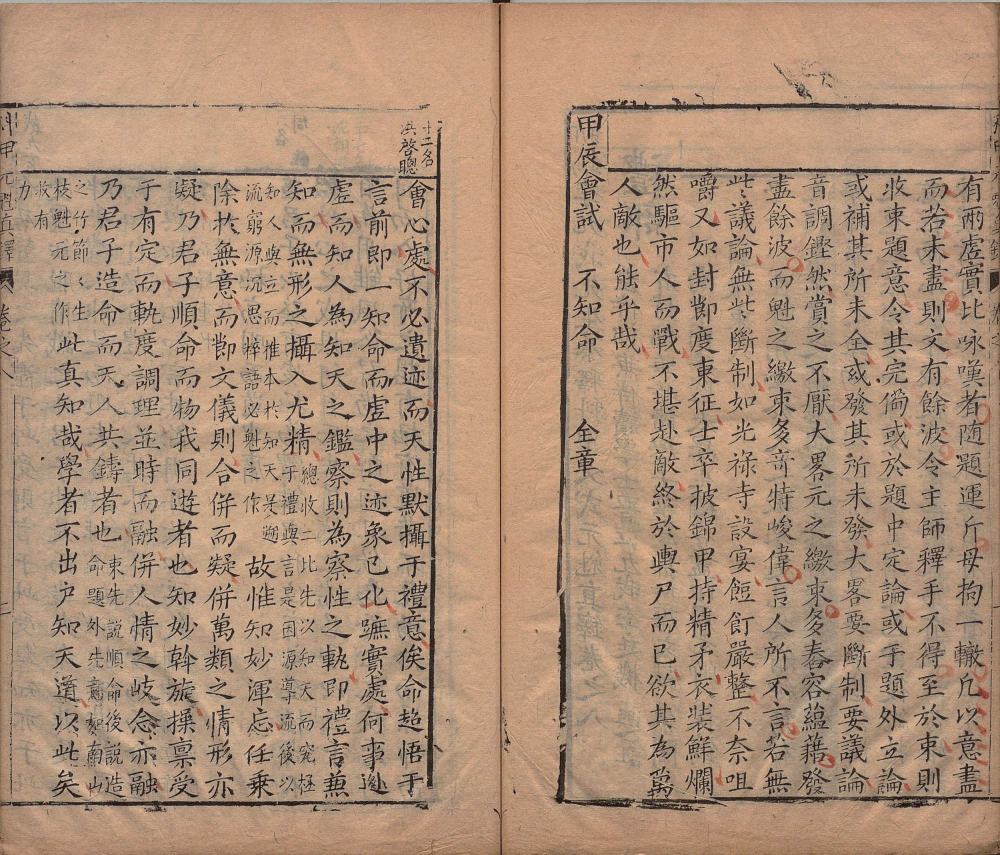 有兩虛實比咏嘆者随題運斤母拘一轍凢以意盡
而若未盡則文有餘波令主師釋手不得至於束則
收束題意令其完僃或於題中定論或于題外立論
或補其所未全或發其所未發大畧要斷制要議論
音調鏗然賞之不厭大畧元之繳束多舂容藴藉發
盡餘波而魁之繳束多竒特峻偉言人所不言若無
此議論無此斷制如光祿寺設宴飽飣嚴整不奈咀
嚼又如封卽度東征士卒披錦甲持精矛衣裝鮮爛
然驅市人而戰不堪赴敵終於輿尸而已欲其為萬
人敵也能乎哉
甲辰會試 不知命 全章
十二名
洪啓聰
會心處不必遺迹而天性默攝于禮意俟命超悟于
言前即一知命而虛中之迹象已化蹠實處何事逊
虛而知人為知天之鑑察則為察性之軌即禮言蕪
知而無形之攝入尤精總收二比先以知天而究極
于禮與言是因源導流後以
知人與立而推本於知天是遡
流窮源沉思粹語必魁之作故惟知妙渾忘任乗
除扵無意而卽文儀則合併而凝併萬類之情形亦
凝乃君子順命而物我同遊者也知妙斡旋操禀受
于有定而軌度調理並時而融併人情之岐念亦融
乃君子造命而天人共鑄者也束先説順命後説造
命題外先意如南山
之竹節〻生
枝魁元之作此真知哉學者不出户知天道以此矣
收有
力
科甲元魁真譯 卷之八